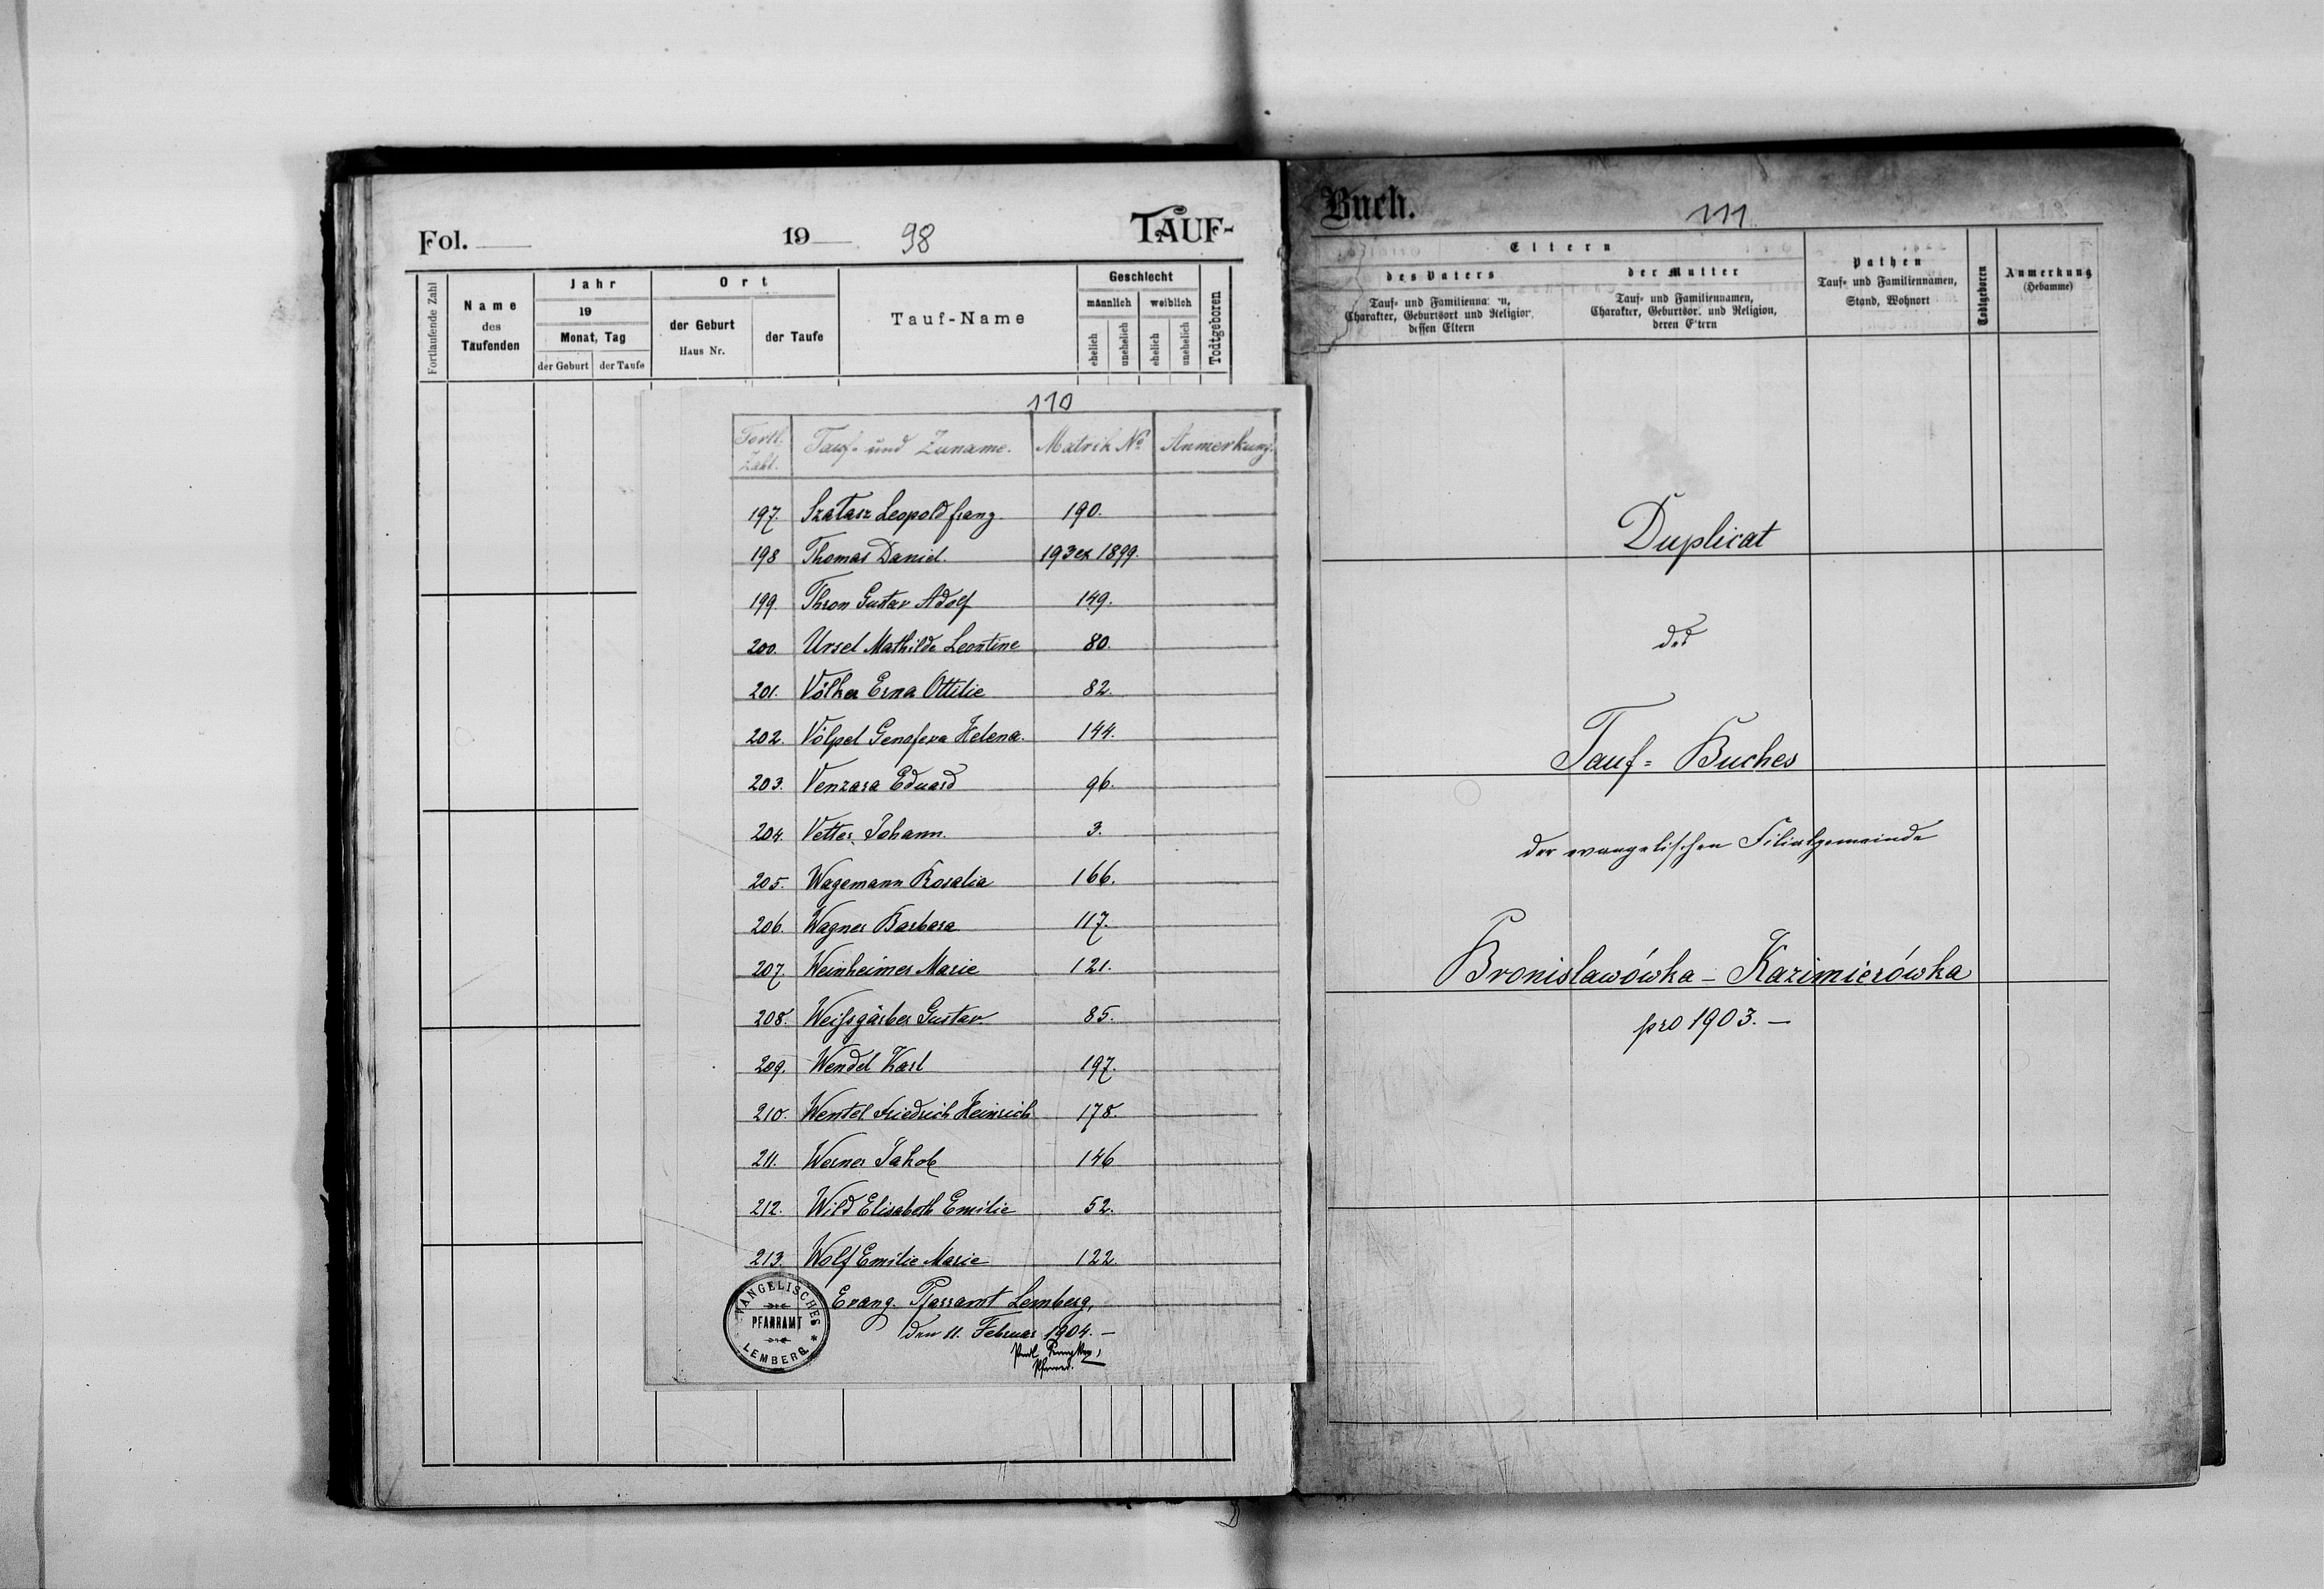 Fol. 19 98 TAUF-
Fortlaufende Zahl
Name des Täufenden
Jahr
19
Monat, Tag
der Geburt der Taufe
Ort
der Geburt
Haus Nr.
der Taufe
Tauf-Name
Geschlecht
männlich weiblich
ehelich unehelich ehelich unehelich
Todtgeboren
110
Fortl. Zahl. Tauf- und Zuname. Matrik No Anmerkung.
197. Szatasz Leopold Franz 190.
198 Thomas Daniel. 193 ex 1899.
199. Thron Gustav Adolf 149.
200. Ursel Mathilde Leontine 80.
201. Völker Erna Ottilie 82.
202. Völpel Genofeva Helena. 144.
203. Venzara Eduard 96.
204. Vetter Johann. 3.
205. Wagemann Rosalia 166.
206. Wagner Barbara 117.
207. Weinheimer Marie 121.
208. Weißgärber Gustav. 85.
209. Wendel Karl 197.
210. Wentel Friedrich Heinrich 178.
211. Werner Jakob 146
212. Wild Elisabeth Emilie 52.
213. Wolf Emilie Marie 122.
Evang. Pfarramt Lemberg,
den 11. Februar 1904. —
Pfarrer.
EVANGELISCHES
PFARRAMT
LEMBERG
Buch. 111
Eltern
des Vaters
Tauf- und Familiennamen,
Charakter, Geburtsort und Religion,
dessen Eltern
der Mutter
Tauf- und Familiennamen,
Charakter, Geburtsort und Religion,
deren Eltern
Pathen
Tauf- und Familiennamen,
Stand, Wohnort
Todtgeboren
Anmerkung
(Hebamme)
Duplicat
des
Tauf= Buches
der evangelischen Filialgemeinde
Bronislawówka - Kazimierówka
pro 1903. —